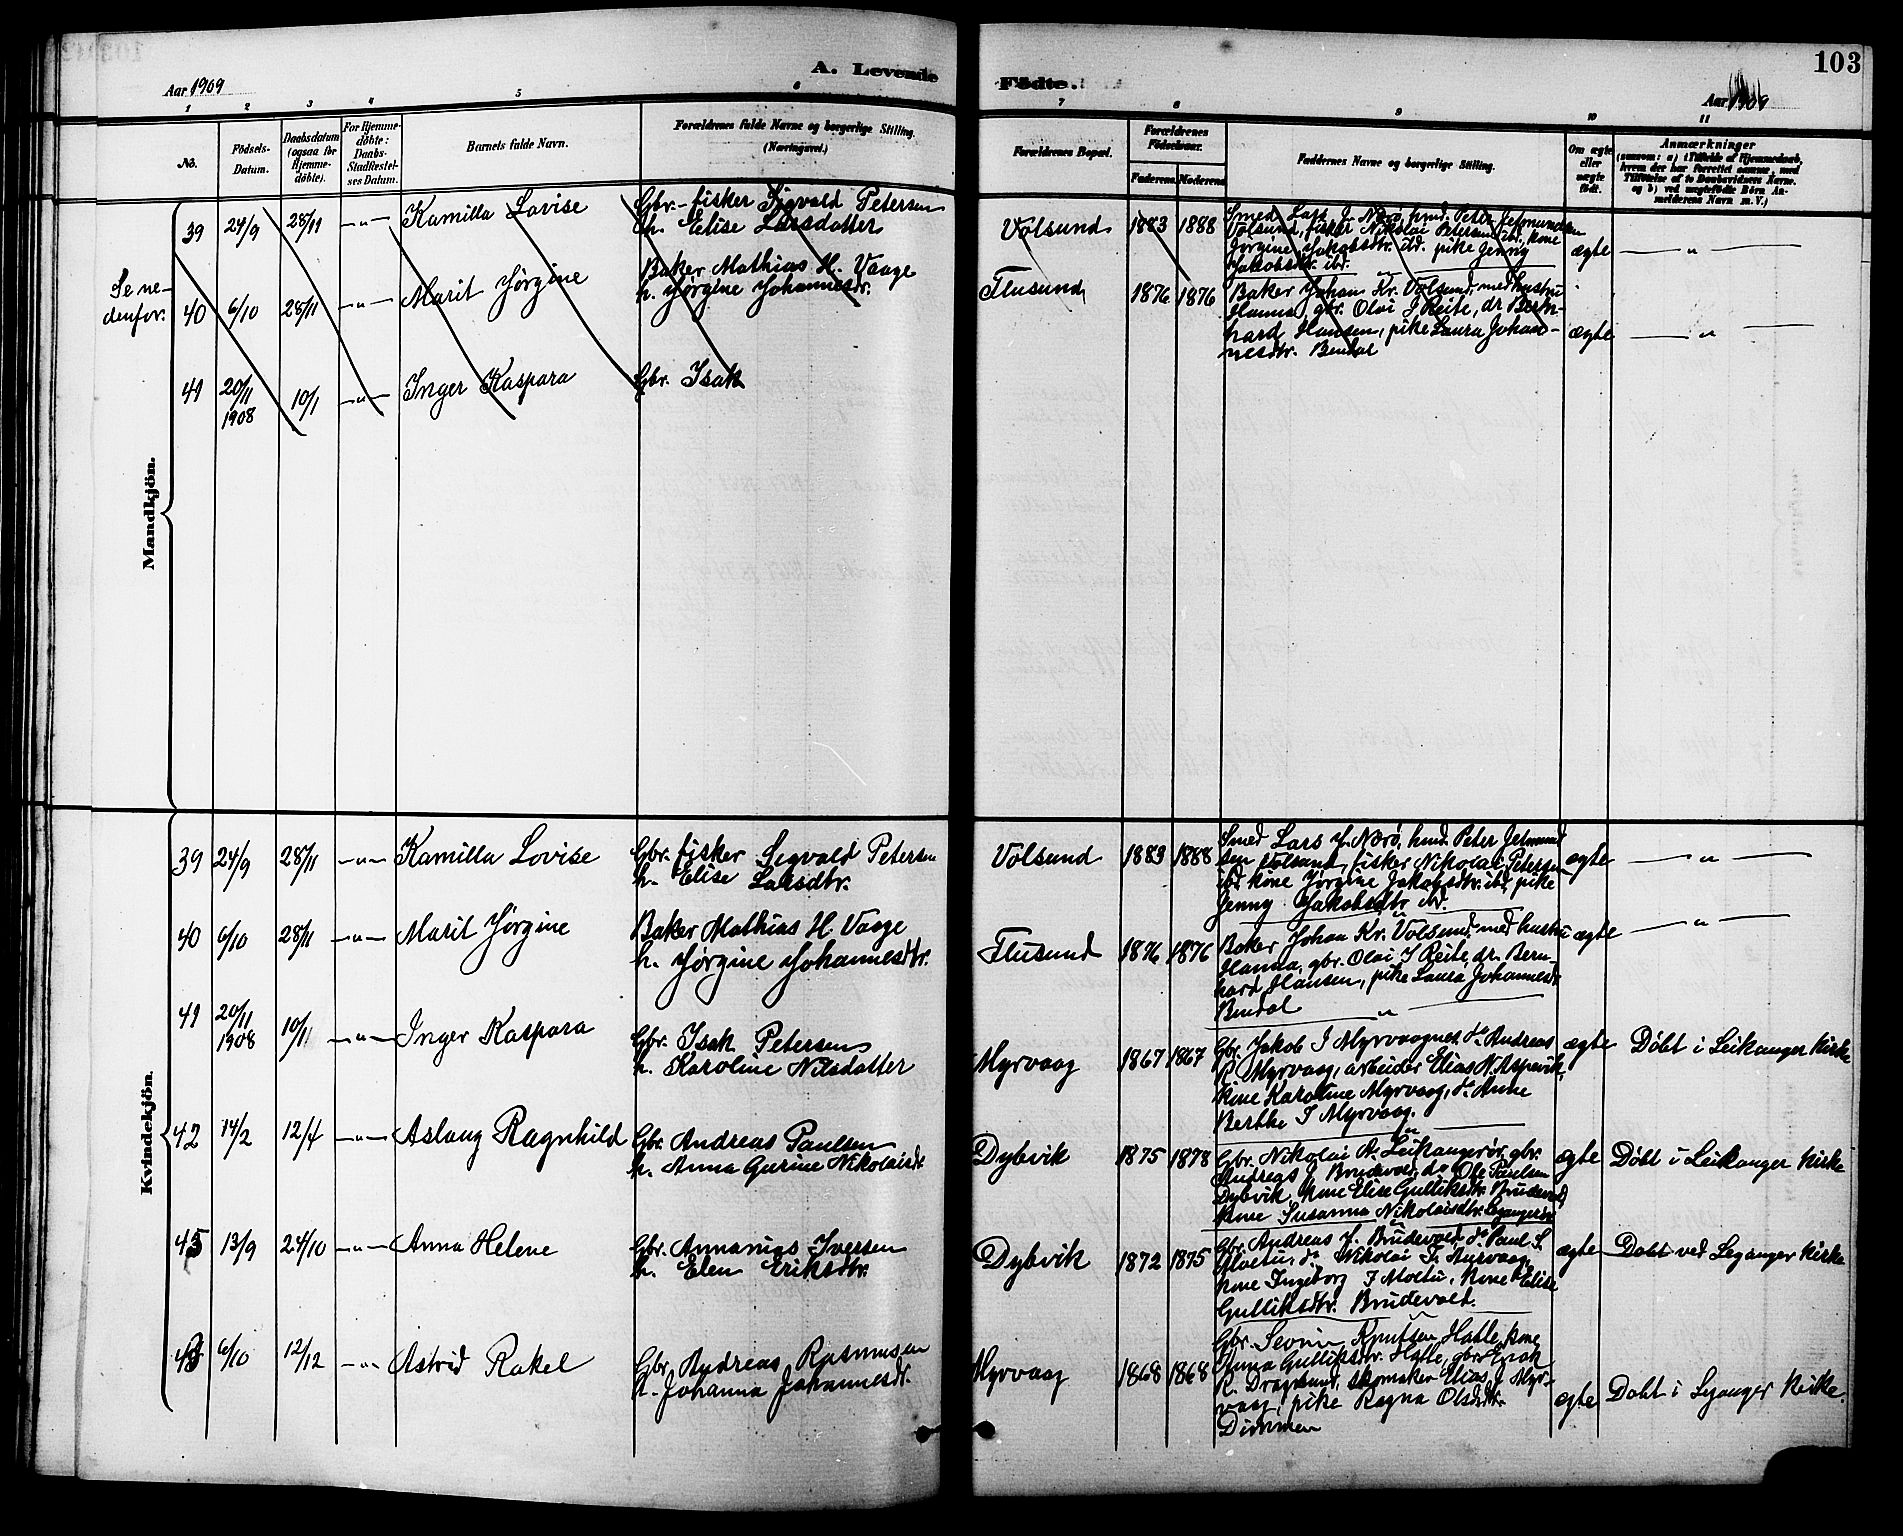 103
A. Levende Födte.
Aar 1909
Aar 1909
1 2 3 4 5 6 7 8 9 10 11
No.
Födsels-Datum.
Daabsdatum (ogsaa for Hjemme-döbte).
For Hjemme-döbte: Daabs-Stadfæstel-ses Datum.
Barnets fulde Navn.
Forældrenes fulde Navne og borgerlige Stilling.
(Næringsvei.)
Forældrenes Bopæl.
Forældrenes Födselsaar.
Faderens. Moderens.
Faddernes Navne og borgerlige Stilling.
Om ægte eller uægte födt.
Anmærkninger
(saasom: a) i Tilfælde af Hjemmedaab, hvem der har forrettet samme, med Tilföielse af to Daabsvidners Navne, og b) ved uægtefödte Börn An-melderens Navn m. V.)
Mandkjön.
Se ne-
denfor.
39 24/9 28/11 -"- Kamilla Lovise
Gbr.-fisker Sigvald Petersen
h. Elise Larsdatter
Volsund 1883 1888
Smed Lars J. Nørø, hmd. Peter Jetmundsen
Volsund, fisker Nikolai Petersen ibd., kone
Jørgine Jakobsdtr. ibd. pike Jenny
Jakobsdtr. ibd.
ægte — " —
40 6/10 28/11 -"- Marit Jörgine
Baker Mathias H. Vaage
h. Jörgine Johannesdr.
Flusund 1876 1876
Baker Johan Kr. Volsund med hustru
Hanna, gbr. Olai J Reite, dr. Bern-
hard Hansen, pike Laura Johan-
nesdtr. Bendal
ægte — " —
41 20/11 1908 10/1 -"- Inger Kaspara
Gbr. Isak
Kvindekjön.
39 24/9 28/11 -"- Kamilla Lovise
Gbr. fisker Sigvald Petersen
h. Elise Larsdtr.
Volsund 1883 1888
Smed Lars J. Nørø, hmd. Peter Jetmund
sen Volsund, fisker Nikolai Petersen
ibd. kone Jørgine Jakobsdtr. ibd, pike
Jenny Jakobsdtr ibd.
ægte — " —
40 6/10 28/11 -"- Marit Jörgine
Baker Mathias H. Vaage
h. Jörgine Johannesdtr.
Flusund 1876 1876
Baker Johan Kr. Volsund med hustru
Hanna, gbr. Olai J Reite, dr. Bern-
hard Hansen, pike Laura Johannesdr
Bendal
ægte — " —
41 20/11 1908 10/1 -"- Inger Kaspara
Gbr. Isak Petersen
h. Karoline Nilsdatter
Myrvaag 1867 1867
Gbr. Jakob I Myrvaagnes, do Andreas
P. Myrvaag, arbeider Elias N. Aspevik,
kone Karoline Myrvaag, do Anne
Berthe I Myrvaag.
ægte Döbt i Leikanger Kirke
42 14/2 12/4 -"- Aslaug Ragnhild
Gbr. Andreas Paulsen
h. Anna Gurine Nikolaisdr.
Dybvik 1875 1878
Gbr. Nikolai A. Leikangerør, gbr.
Andreas J Brudevold, do Ole Paulsen
Dybvik, kone Elise Gulliksdtr. Brudevold
kone Susanna Nikolaisdtr.
ægte Döbt i Leikanger Kirke
13/9 24/10 -"- Anna Helene
Gbr. Annanias Iversen
h. Elen Eriksdtr.
Dybvik 1872 1875
Gbr. Andreas J. Brudevold, do Paul S.
Moltu, do Nikolai T. Myrvaag,
kone Ingeborg I Moltu, kone Elise
Gulliksdtr. Brudevold.
ægte Dobt ved Leganger Kirke
6/10 12/12 -"- Astrid Rakel
Gbr. Andreas Rasmusen
h. Johanna Johannesdr.
Myrvaag 1868 1868
Gbr. Severin Knutsen Hatle, kone
Anna Gulliksdtr. Hatle, gbr. Isak
R. Dragsund, skomaker Elias J Myr-
vaag, pike Ragna Olsdtr.
Dimmen
ægte Dobt i Leganger Kirke.